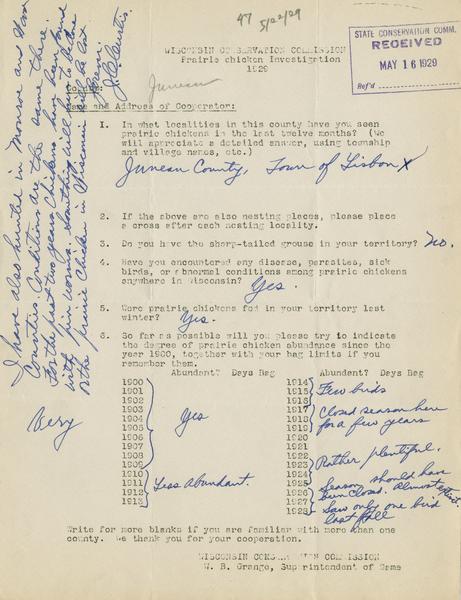 47 5/22/29
WISCONSIN CONSERVATION COMMISSION
Prairie chicken Investigation
1929
STATE CONSERVATION COMM.
RECEIVED
MAY 16 1929
Ref'd
Juneau
Name and Address of Cooperator:
1. In what localities in this county have you seen
prairie chickens in the last twelve months? (We
will appreciate a detailed answer, using township
and village names, etc.)
Juneau County, Town of Lisbon X
2. If the above are also nesting places, please place
a cross after each nesting locality.
3. Do you have the sharp-tailed grouse in your territory? No.
4. Have you encountered any disease, parasites, sick
birds, or abnormal conditions among prairie chickens
anywhere in Wisconsin? Yes.
5. Were prairie chickens fed in your territory last
winter? Yes.
6. So far as possible will you please try to indicate
the degree of prairie chicken abundance since the
year 1900, together with your bag limits if you
remember them.
Abundant? Days Bag Abundant? Days Bag
1900
1901
1902
1903
1904
1905
1906
1907
1908
1909
Very
Yes
1910
1911
1912
1913
Less Abundant.
1914
1915
1916
Few birds
1917
1918
1919
Closed season here
for a few years
1922
1923
1924
Rather plentiful.
1925
1926
1927
1928
Season should have
been closed. Almost extinct.
Saw only one bird
last fall
Write for more blanks if you are familiar with more than one
county. We thank you for your cooperation.
WISCONSIN CONSERVATION COMMISSION
W. B. Grange, Superintendent of Game
I have also hunted in Monroe and
Counties. Conditions are the same there.
For the past two years Chickens have been found
with pin worms. Something will have to be done
or the prairie Chicken in Wisconsin will be lost
J. P. Curtis.